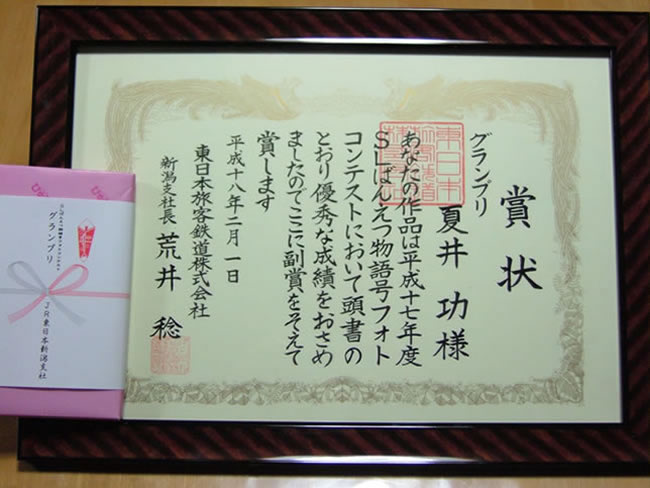 賞状
グランプリ
夏井 功様
あなたの作品は平成十七年度
SLばんえつ物語号フォト
コンテストにおいて頭書の
とおり優秀な成績をおさめ
ましたのでここに副賞をそえて
賞します
平成十八年二月一日
東日本旅客鉄道株式会社
新潟支社長 荒井 稔
グランプリ
JR東日本新潟支社